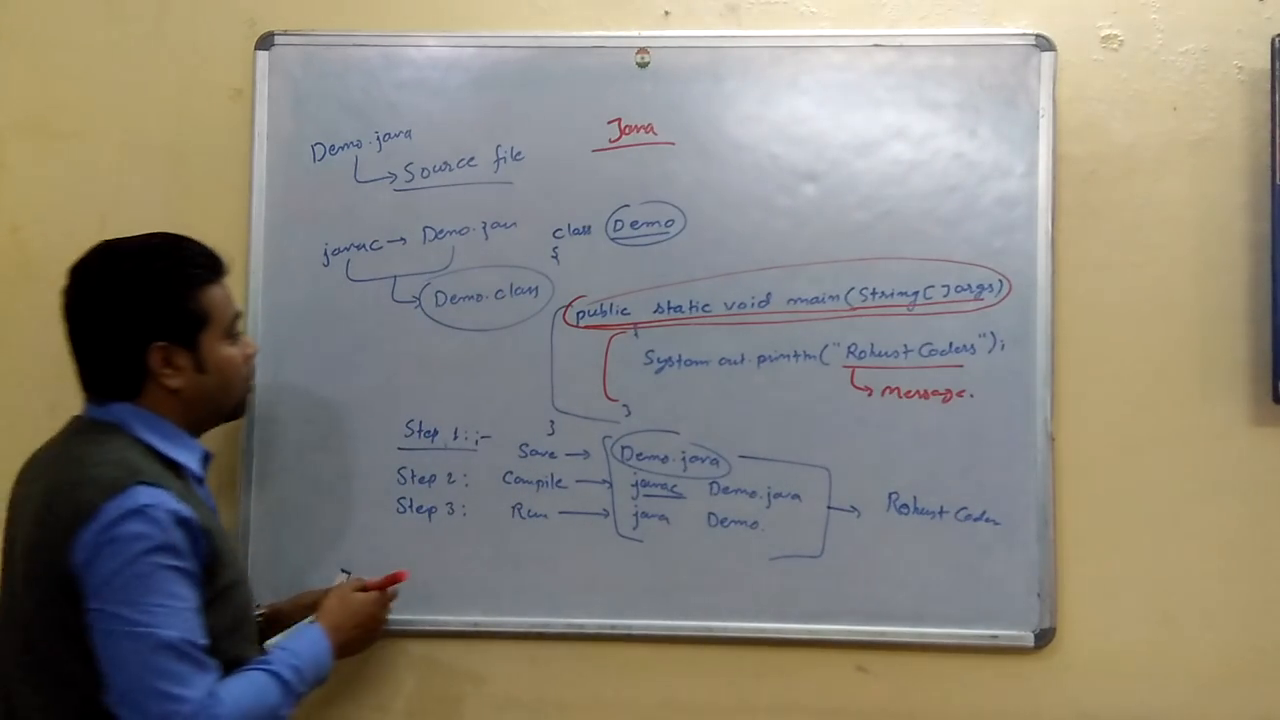 Java
Demo.java
Source file
javac → Demo.java
Demo.class
class Demo
{
public static void main(String[]args)
{
System.out.println("Robust Coders");
Message.
}
}
Step 1:- Save → Demo.java
Step 2: Compile → javac Demo.java
Step 3: Run → java Demo.
Robust Coder